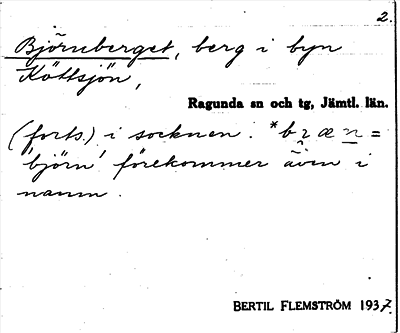 2.
Björnberget, berg i byn
Köttsjön,
Ragunda sn och tg, Jämtl. län.
(forts.) i socknen. *bræn =
'björn' förekommer även i
namn.
BERTIL FLEMSTRÖM 1937.